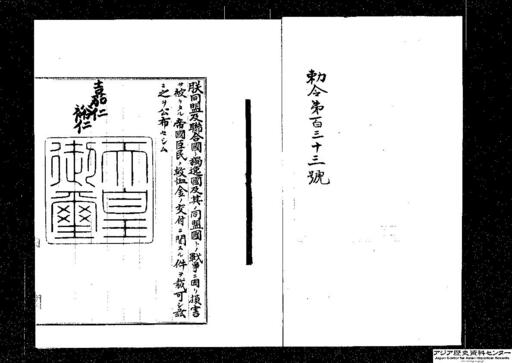 勅令第百三十三號
朕同盟及聯合國ト獨逸國及其ノ同盟國トノ戰爭ニ因リ損害
ヲ被リタル帝國臣民ノ救恤金ノ交付ニ關スル件ヲ裁可シ茲
ニ之ヲ公布セシム
嘉仁
裕仁
天皇
御璽
アジア歴史資料センター
Japan Center for Asian Historical Records